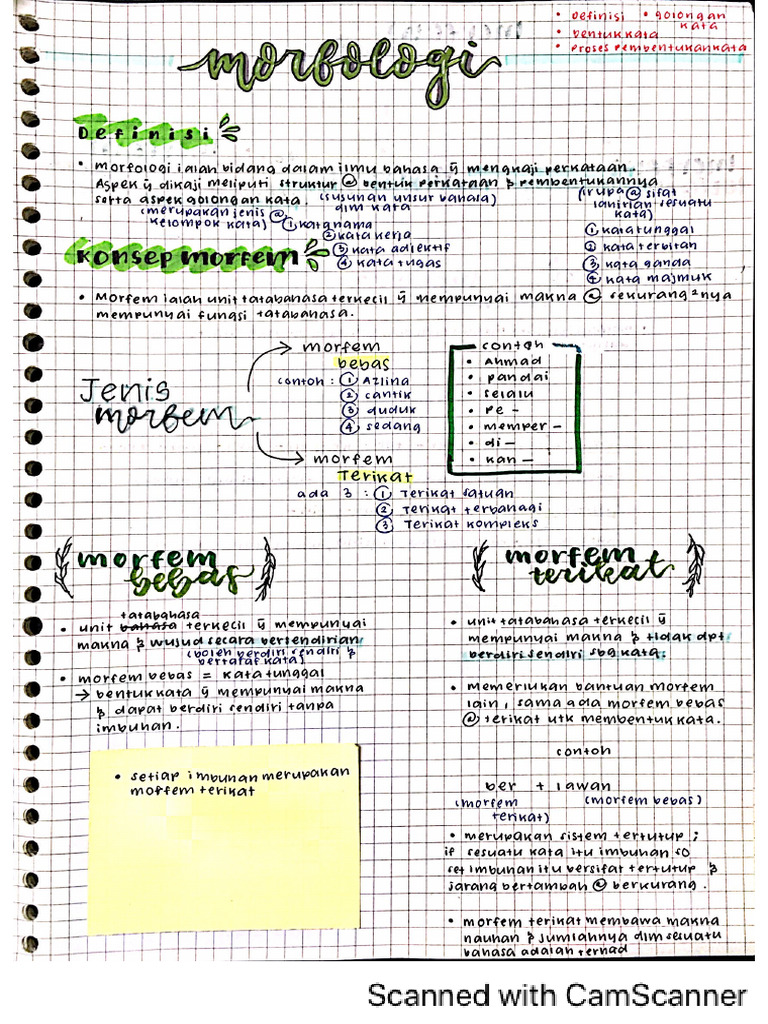 • Definisi • golongan kata
• Bentuk kata
• Proses pembentukan kata
morfologi
Definisi
• morfologi ialah bidang dalam ilmu bahasa yg mengkaji perkataan.
Aspek yg dikaji meliputi struktur @ bentuk perkataan & pembentukannya
serta aspek golongan kata. (susunan unsur bahasa) (rupa @ sifat
(merupakan jenis @ dlm kata lahirian sesuatu
kelompok kata) ① kata nama kata)
② kata kerja ① kata tunggal
③ kata adjektif ② kata terbitan
④ kata tugas ③ kata ganda
④ kata majmuk
Konsep morfem
• Morfem ialah unit tatabahasa terkecil yg mempunyai makna @ sekurang²nya
mempunyai fungsi tatabahasa.
Jenis
morfem
morfem
bebas
contoh : ① Azlina
② cantik
③ duduk
④ sedang
contoh
• Ahmad
• pandai
• selalu
• pe -
• memper -
• di -
• kan -
morfem
Terikat
ada 3 : ① Terikat satuan
② Terikat terbahagi
③ Terikat kompleks
morfem
bebas
tatabahasa
• unit bahasa terkecil yg mempunyai
makna & wujud secara bersendirian
(boleh berdiri sendiri &
bertaraf kata)
• morfem bebas = kata tunggal
→ bentuk kata yg mempunyai makna
& dapat berdiri sendiri tanpa
imbuhan.
• setiap imbuhan merupakan
morfem terikat
morfem
terikat
• unit tatabahasa terkecil yg
mempunyai makna & tidak dpt
berdiri sendiri sbg kata.
• memerlukan bantuan morfem
lain, sama ada morfem bebas
@ terikat utk membentuk kata.
contoh
ber + lawan
(morfem (morfem bebas)
terikat)
• merupakan sistem tertutup ;
if sesuatu kata itu imbuhan so
set imbuhan itu bersifat tertutup &
jarang bertambah @ berkurang.
• morfem terikat membawa makna
nauhan & jumlahnya dlm sesuatu
bahasa adalah terhad
Scanned with CamScanner